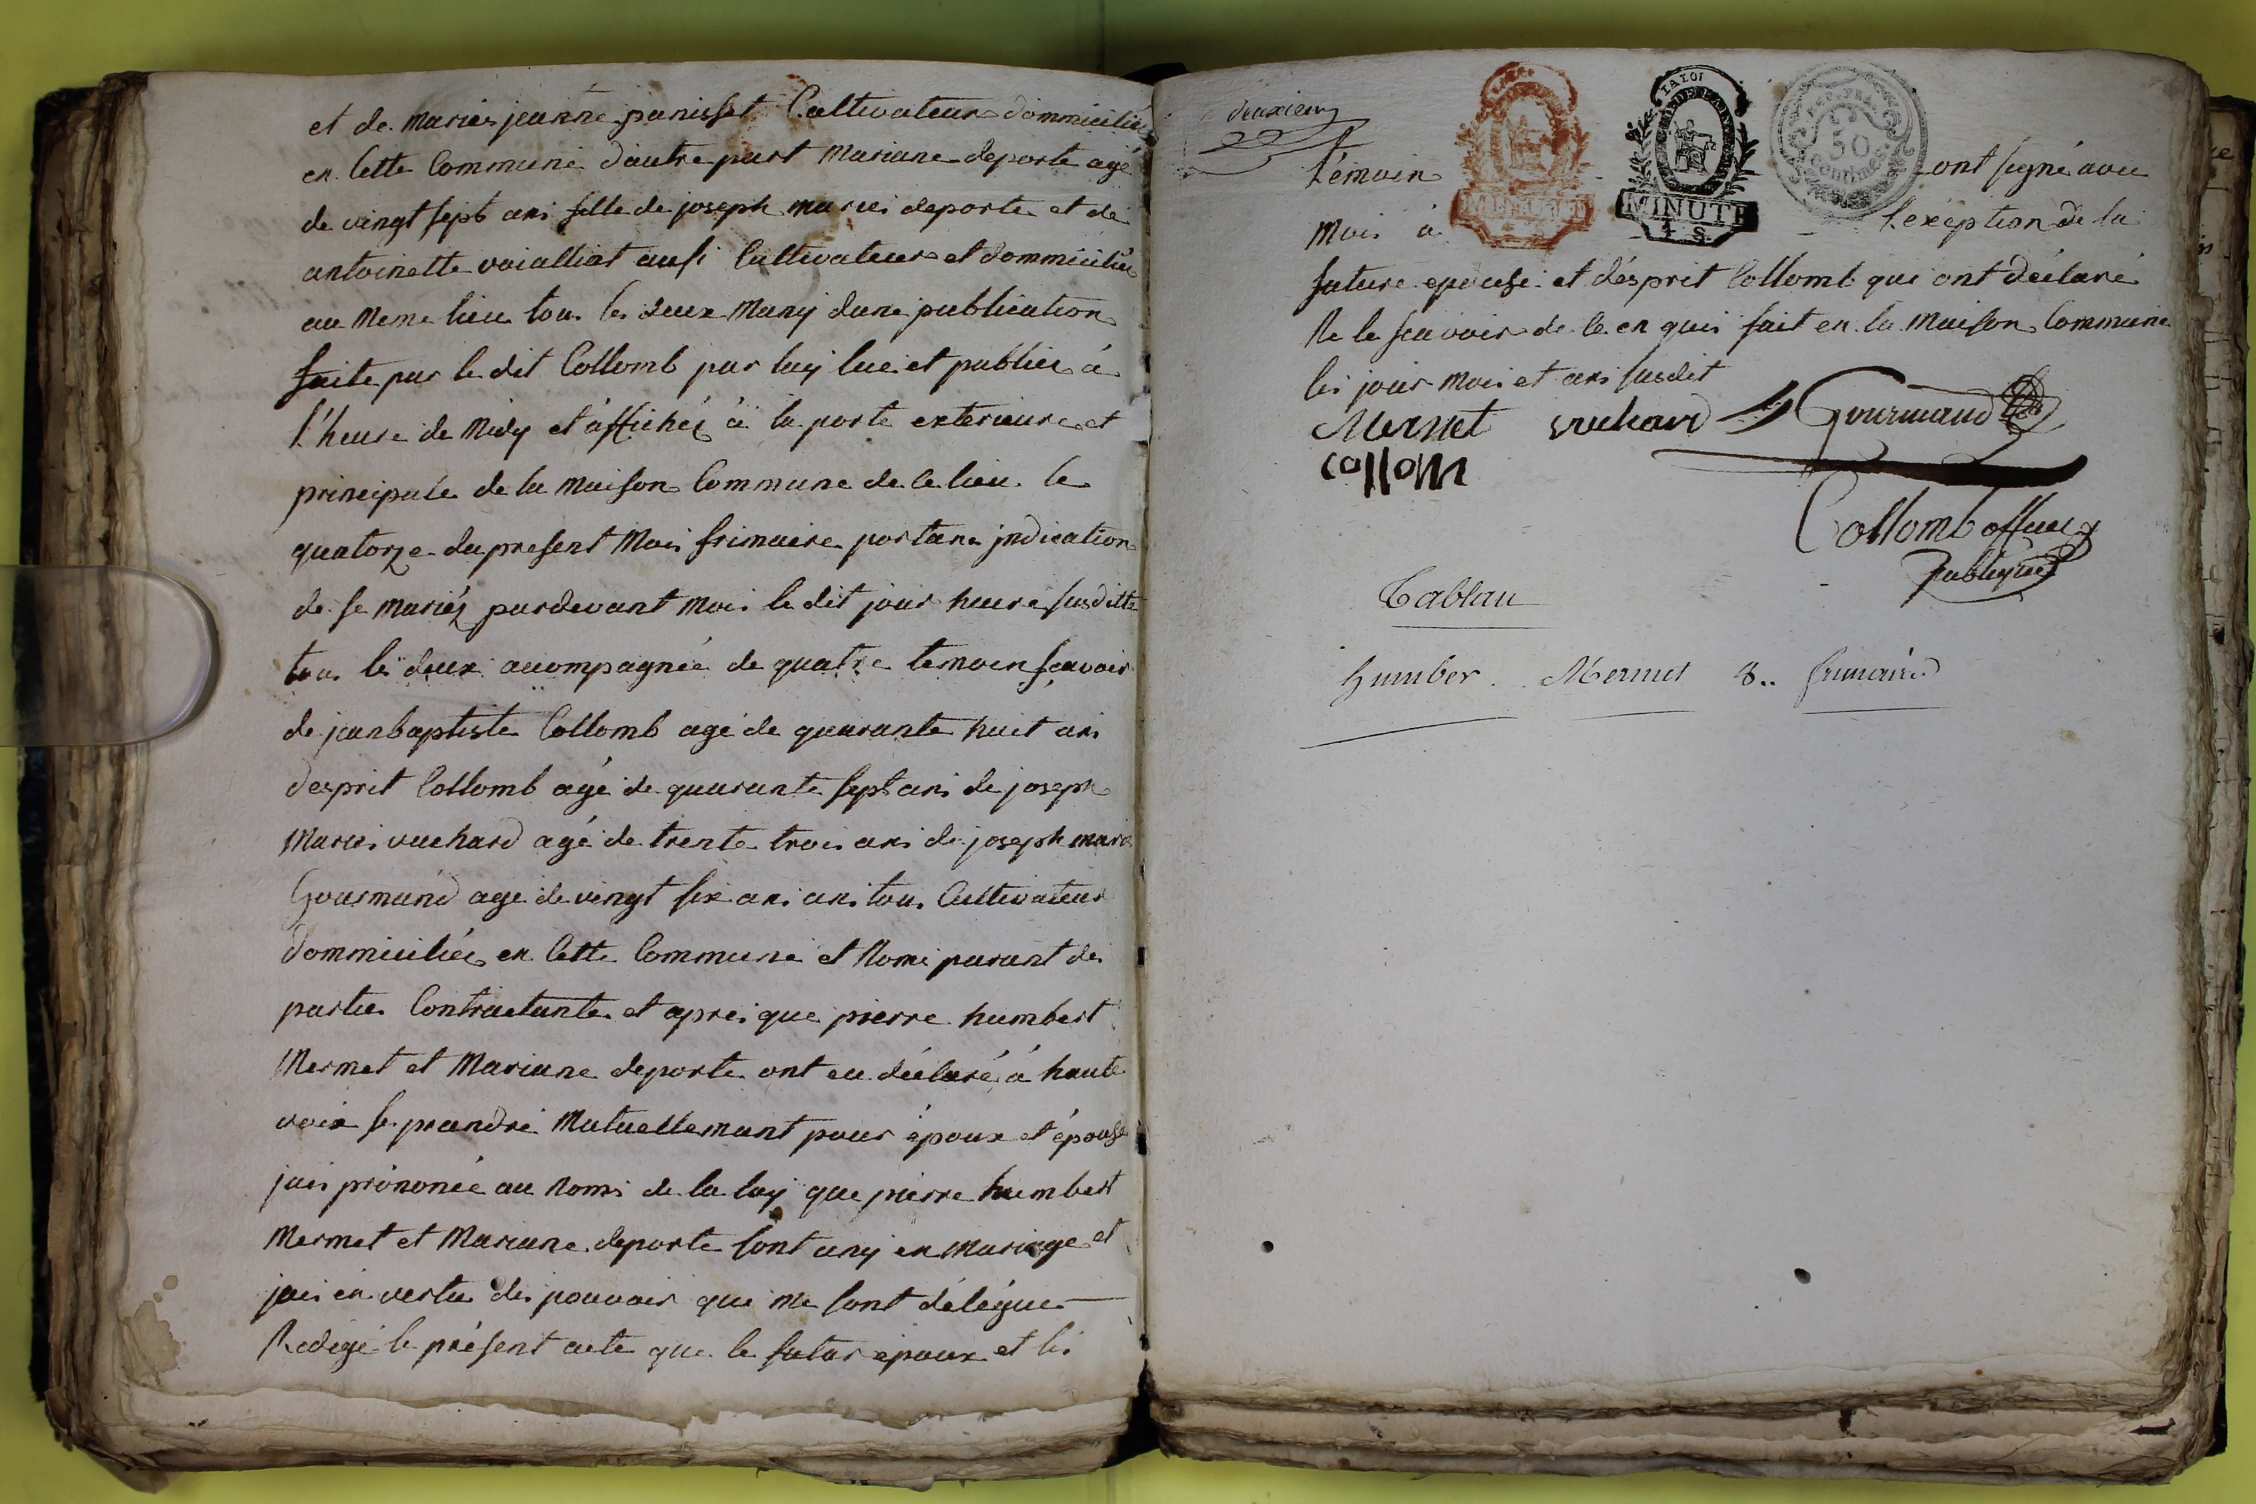 et de Marie jeanne panisset Cultivateur dommiciliée
en Cette Commune d'autre part Mariane deporte agé
de vingt sept ans fille de joseph marie deporte et de
antoinette voialliat ausi Cultivateur et dommiciliée
au Meme lieu tou les deux Many dune publication
faite par le dit Collomb par luy lue et publiée á
l'heure de Midy et áffichéz á la porte exterieure et
principale de la Maison Commune de Ce lieu le
quatorze du present Mois frimaire portant jndication
de se mariéz pardevant Moi le dit jour heure susditte
tou les deux accompagnée de quatre temoin scavoir
de jeanbaptiste Collomb agé de quarante huit ans
desprit Collomb agé de quarante sept ans de joseph
Marie vuchard agé de trente trois ans de joseph marie
Gourmand agé de vingt six ans ans tou Cultivateur
dommiciliée en Cette Commune et Nomi parant des
partie Contractante et aprés que pierre humbert
Mermet et Mariane deporte ont eu déclaré á haute
voix se prandre Mutuellemant pour époux et épouse
jai prononcé au Nom de la loy que pierre humbert
Mermet et Mariane deporte sont uny en Mariage et
jai en vertu des pouvoir qui Me sont délégue
Redigé le présent acte que le futur époux et les
deuxieme
témoin ont signé avec
Moi á l'exéption de la
future epouse et désprit Collomb qui ont déclaré
Ne le scavoir de Ce en quis fait en la Maison Commune
les jour Moi et ans susdit
LA LOI
MINUTE
4 S.
50
centimes
Mermet vuchard Gourmand
collom
Collomb officier
publique
Tablau
humber Mermet 8.. frimaire